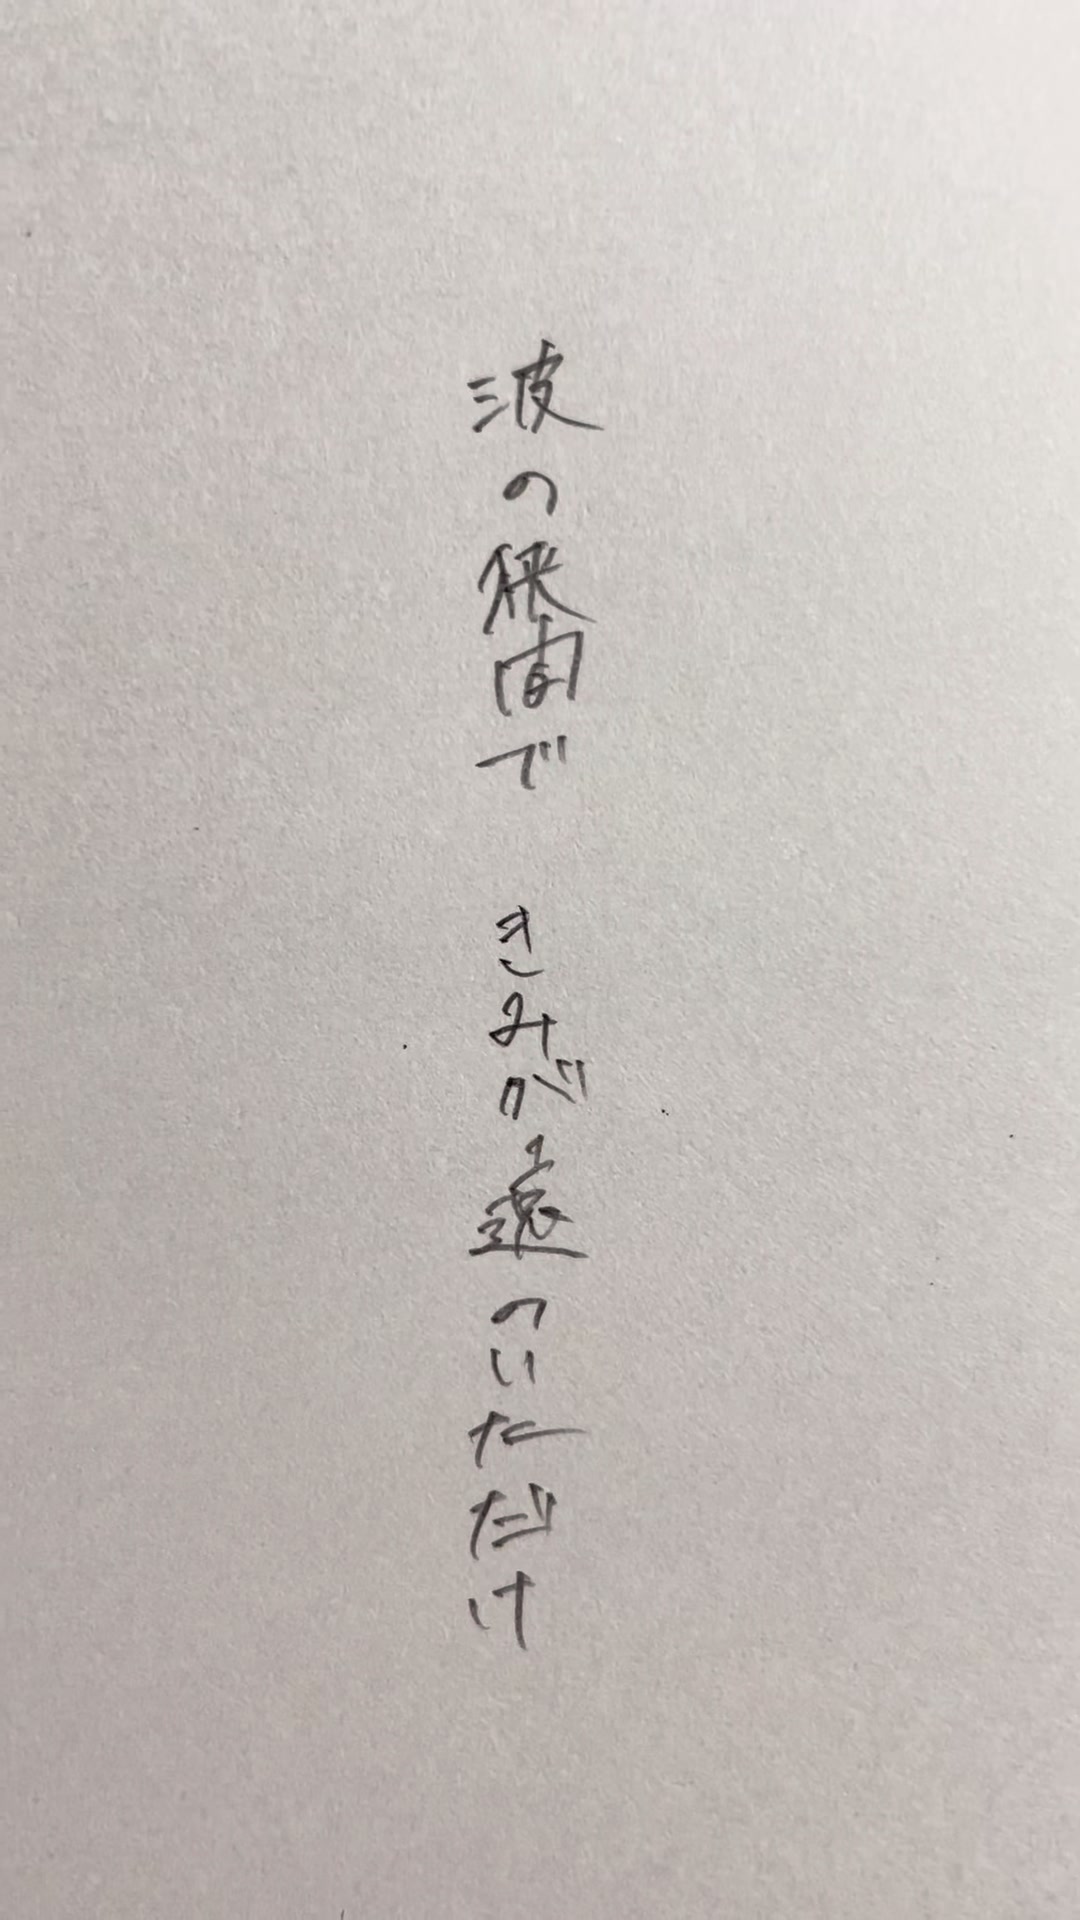 波の狭間で　きみが遠のいただけ